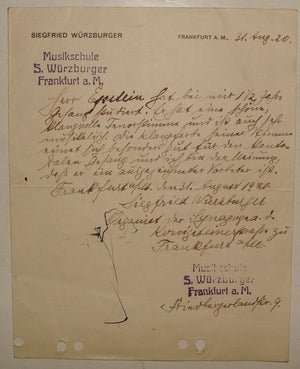 SIEGFRIED WÜRZBURGER
FRANKFURT A. M., 31. Aug. 20.
Musikschule
S. Würzburger
Frankfurt a. M.
Herr Epstein hat bei mir 1½ Jahr
Gesang studiert. Er hat eine schöne,
klangvolle Tenorstimme und ist auch sehr
musikalisch. Die Klangfarbe seiner Stimme
eignet sich besonders gut für den kanto-
ralen Gesang und ich bin der Meinung,
daß er ein ausgezeichneter Vorbeter ist.
Frankfurt a/M. den 31. August 1920.
Siegfried Würzburger
Organist der Synagoge a. d.
Königsteinerstraße zu
Frankfurt a/M.
Musikschule
S. Würzburger
Frankfurt a. M.
Friedbergerlandstr. 9.